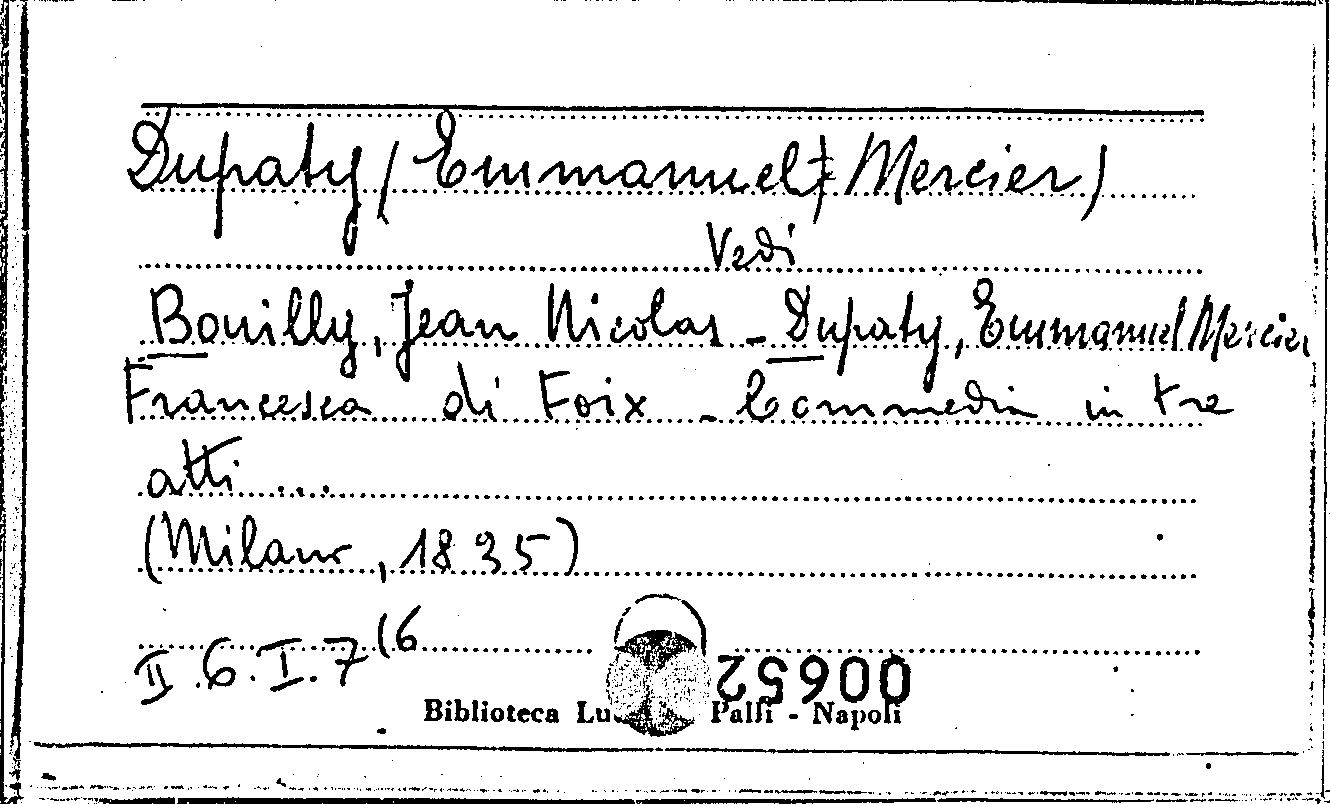 Dupaty (Emmanuel Mercier)
Vedi
Bouilly, Jean Nicolas - Dupaty, Emmanuel Mercier
Francesca di Foix - Commedia in tre
atti ...
(Milano, 1835)
II.6.I.7(6
00652
Biblioteca Palli - Napoli